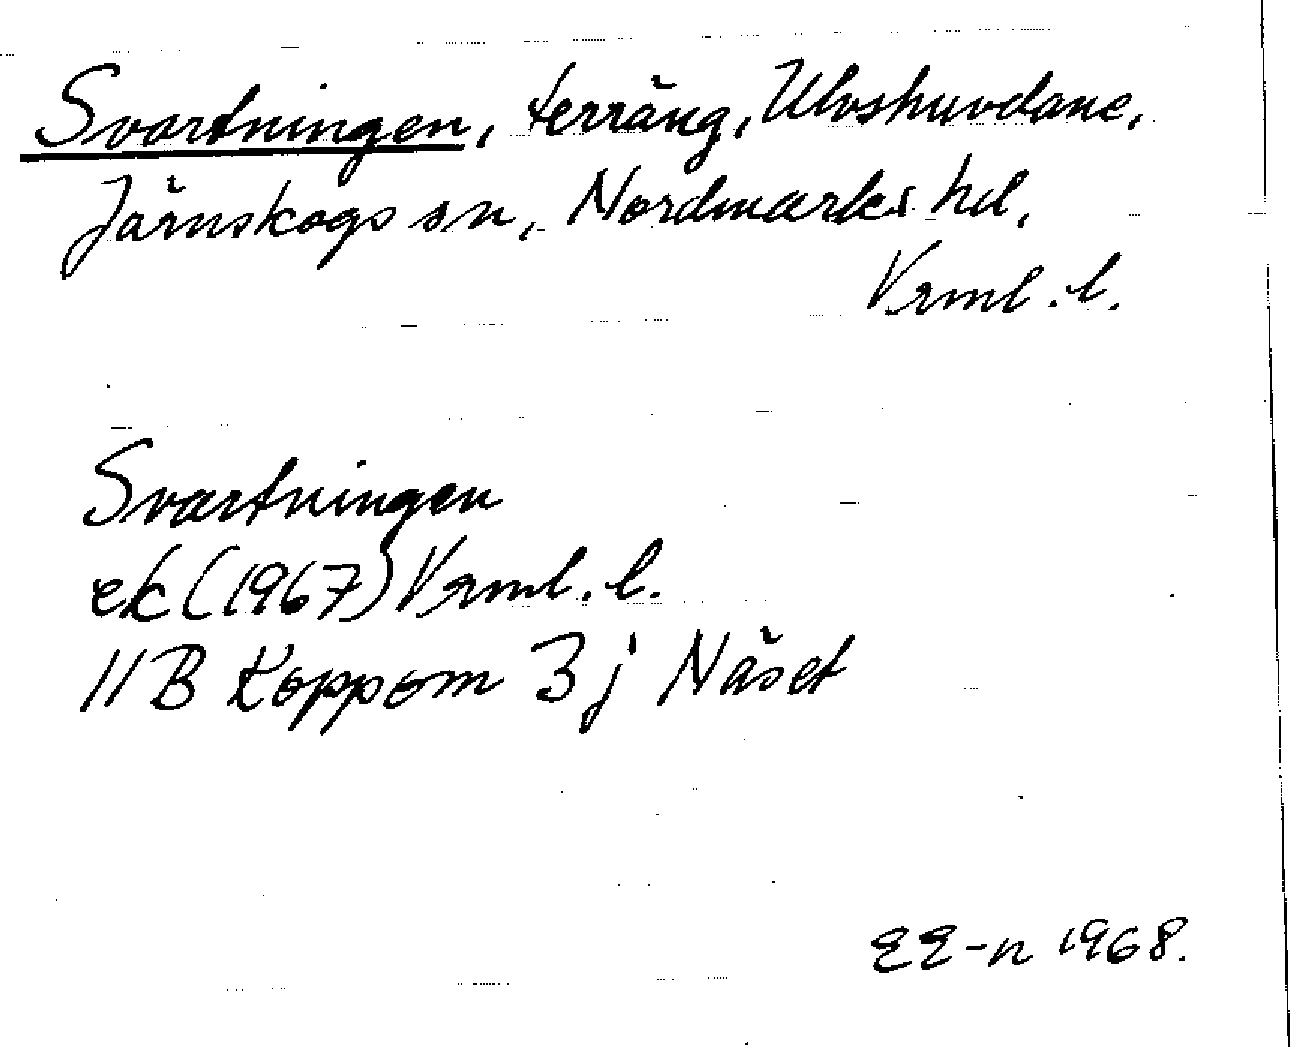 Svartningen, terräng, Ulvshuvdane,
Järnskogs sn, Nordmarks hd,
Vrml. l.
Svartningen
ek (1967) Vrml. l.
11B Koppom 3j Näset
EE-n 1968.